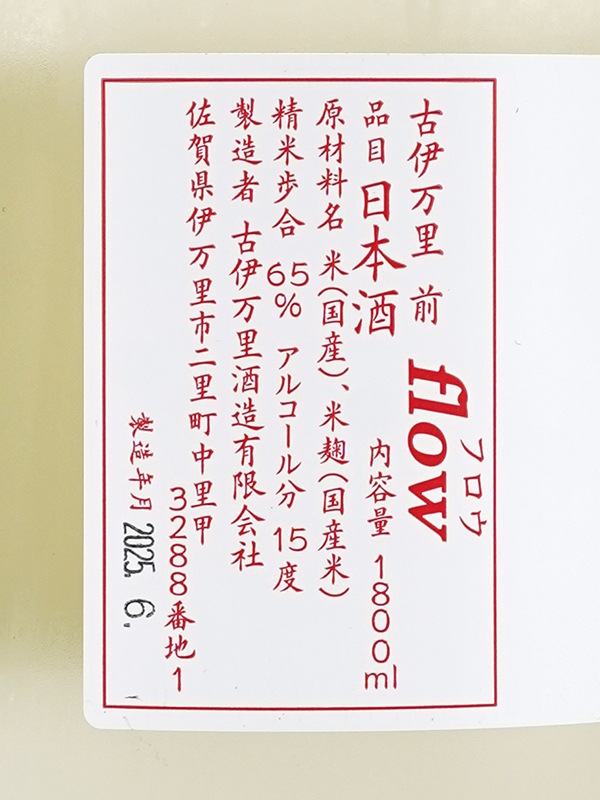 古伊万里 前 flow
フロウ
品目 日本酒 内容量 1800ml
原材料名 米(国産)、米麹(国産米)
精米歩合 65% アルコール分 15度
製造者 古伊万里酒造有限会社
佐賀県伊万里市二里町中里甲
3288番地1
製造年月 2025. 6.